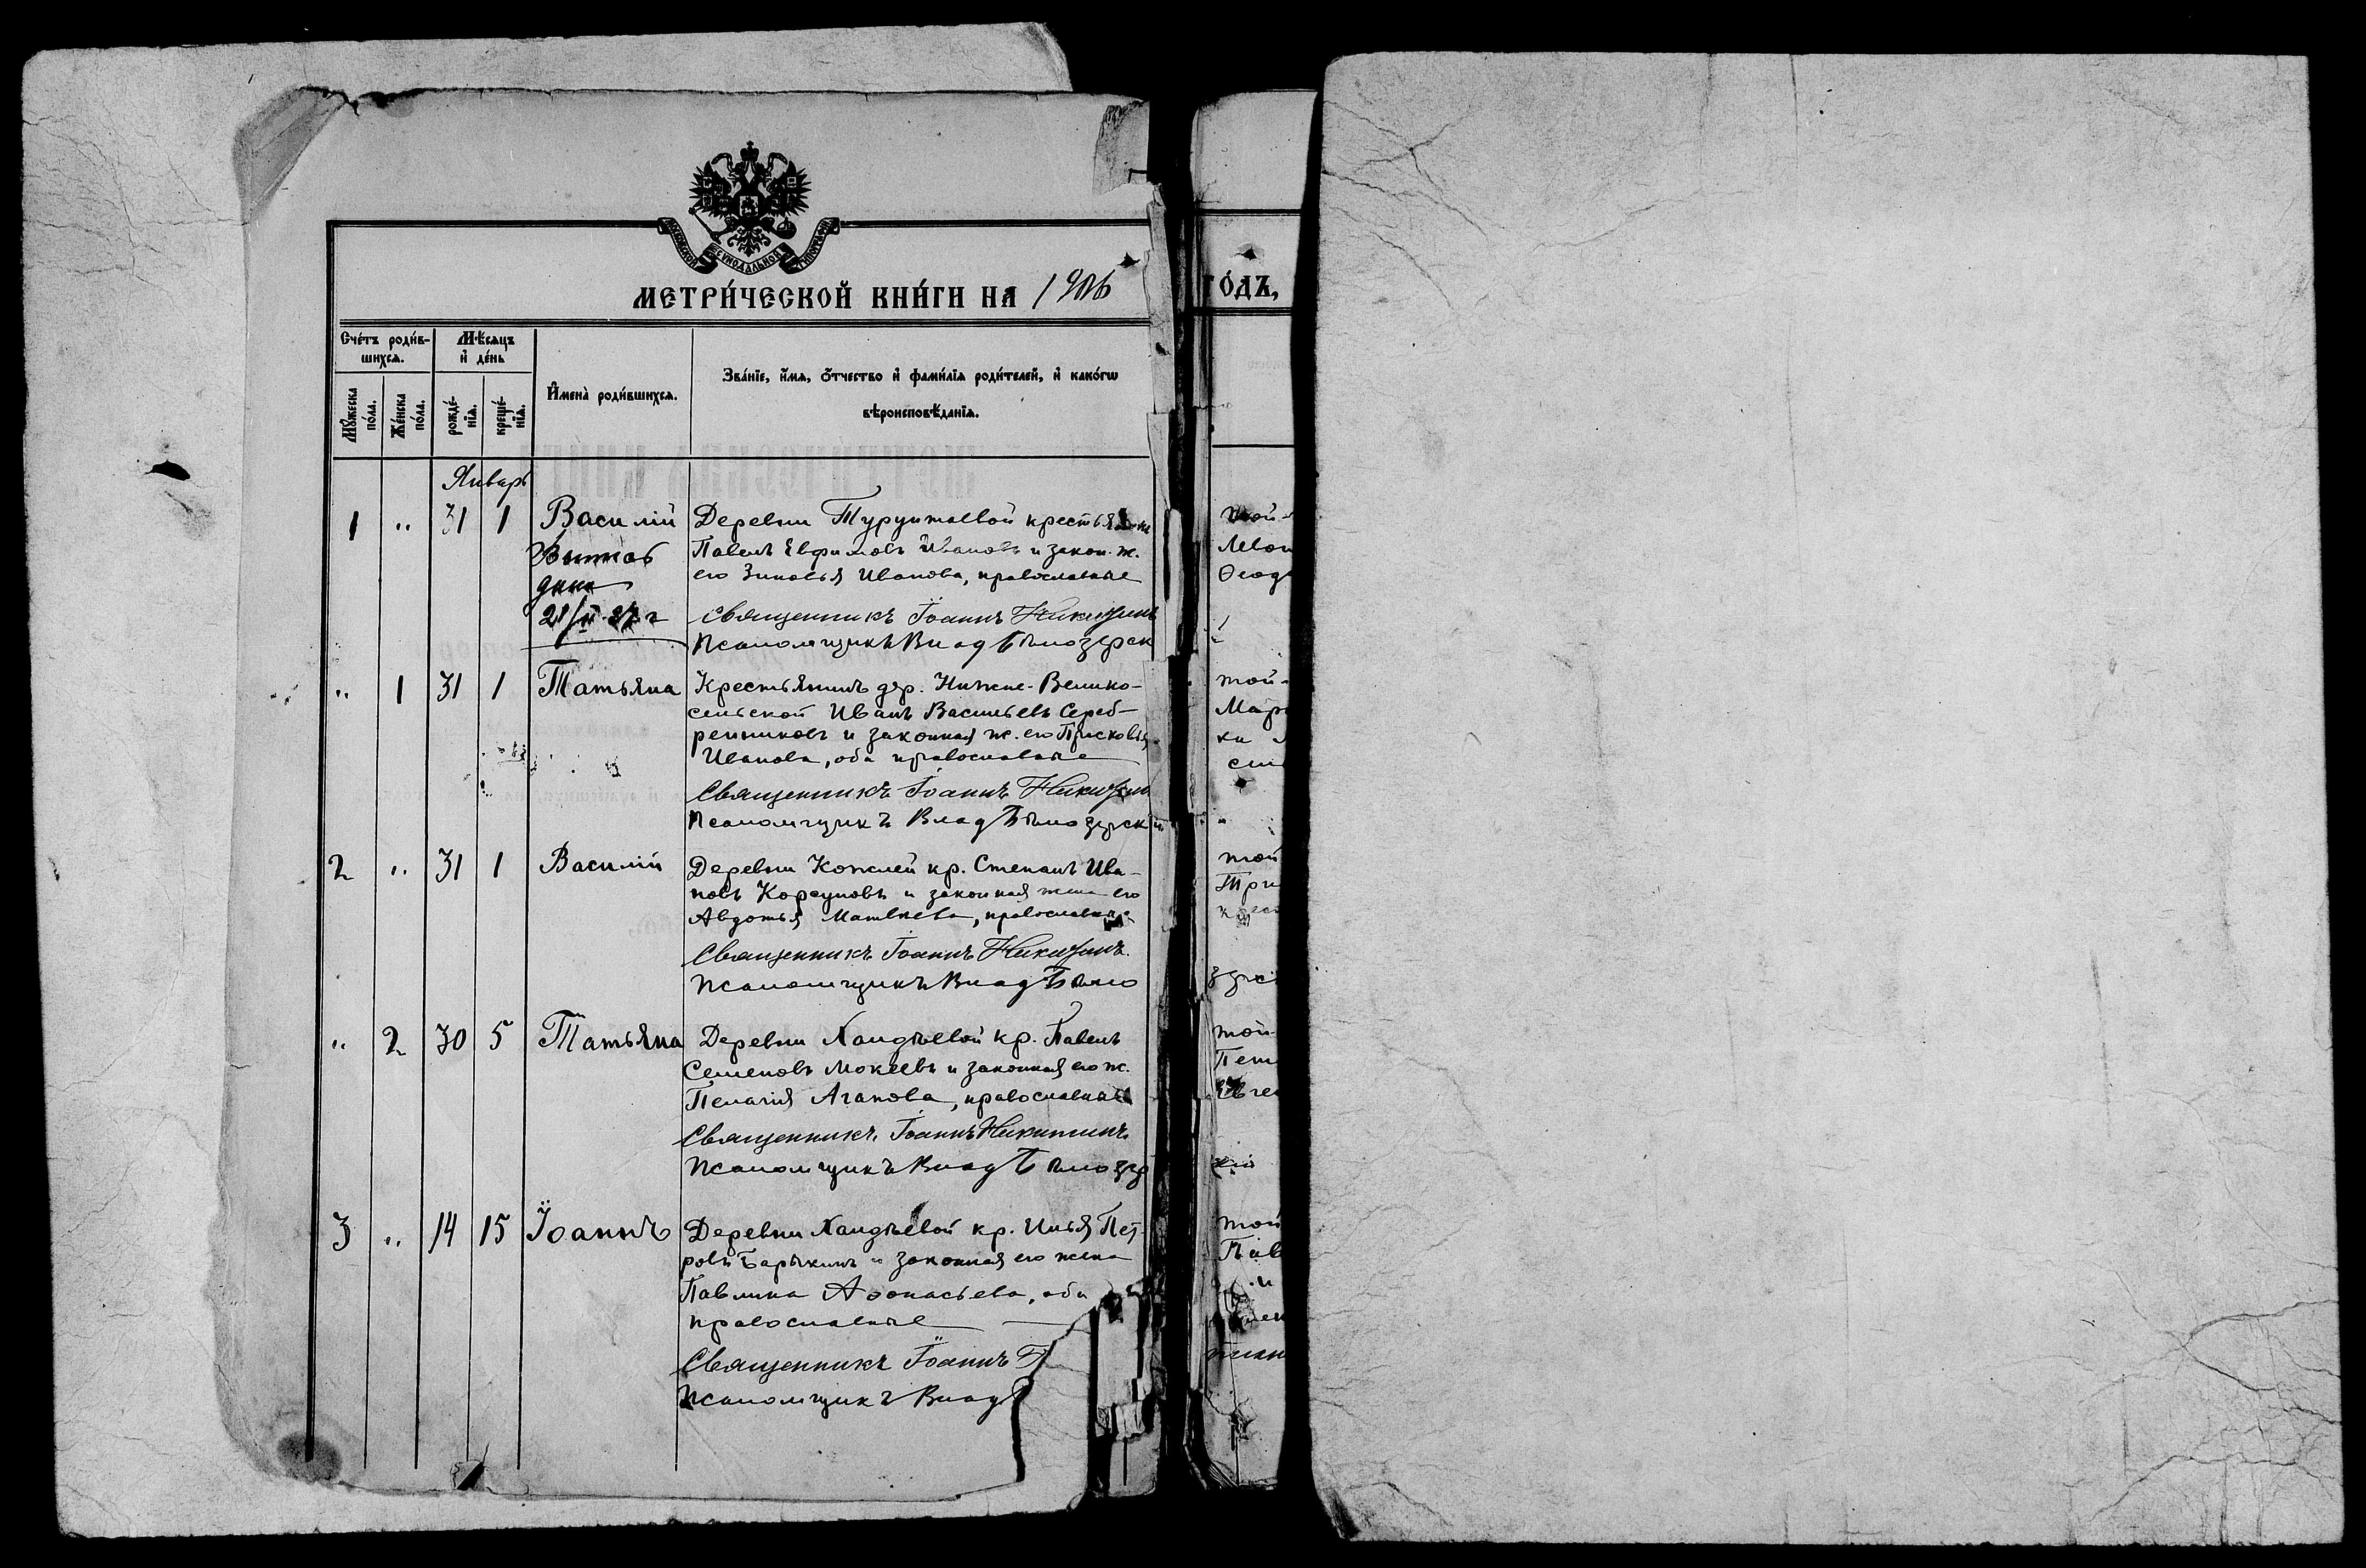 МОСКОВСКОЙ СѴНОДАЛЬНОЙ ТИПОГРАФІИ
МЕТРИ́ЧЕСКОЙ КНИ́ГИ НА 1906
ГО́ДЪ,
Сче́тъ роди́в-
шихся.
Мѣ́сяцъ
и҆ де́нь
Мꙋ́жеска
по́ла.
Же́нска
по́ла.
рожде́-
нїя.
креще́-
нїя.
И҆мена̀ роди́вшихся.
Зва́нїе, и҆́мя, ѻ҆́тчество и҆ фами́лїя роди́телей, и҆ како́гѡ
вѣроисповѣ́данїя.
Январь
1 " 31 1 Василій Деревни Турунтаевой
Павелъ Евфимовъ Ивановъ и закон. ж.
его Зиновья Иванова, православные
21/II 37 г Священникъ Іоаннъ Никитинъ
Псаломщикъ Влад Бѣлозерск
" 1 31 1 Татьяна Крестьянинъ дер. Нижне-Велико-
сельской Иванъ Васильевъ Сереб-
ренниковъ и законная ж. его Прасковья
Иванова, оба православные
Священникъ Іоаннъ Никитинъ
Псаломщикъ Влад Бѣлозерск
2 " 31 1 Василій Деревни Кожлей кр. Степанъ Ива-
новъ Корсуновъ и законная жена его
Авдотья Матвѣева, православные
Священникъ Іоаннъ Никитинъ.
Псаломщикъ Влад Бѣло
" 2 30 5 Татьяна Деревни Хандѣевой кр. Павелъ
Семеновъ Мокеевъ и законная его ж.
Пелагія Агапова, православные
Священникъ Іоаннъ Никитинъ
Псаломщикъ Влад Бѣлозер
3 " 14 15 Іоаннъ Деревни Хандѣевой кр. Илья Пет-
ровъ Барыкинъ и законная его жена
Павлина Афонасьева, оба
православные
Священникъ Іоаннъ
Псаломщикъ Влад
той-
Ѳеод
той-
Мар
ки
той
Три
той-
Пет
той
Пав
и